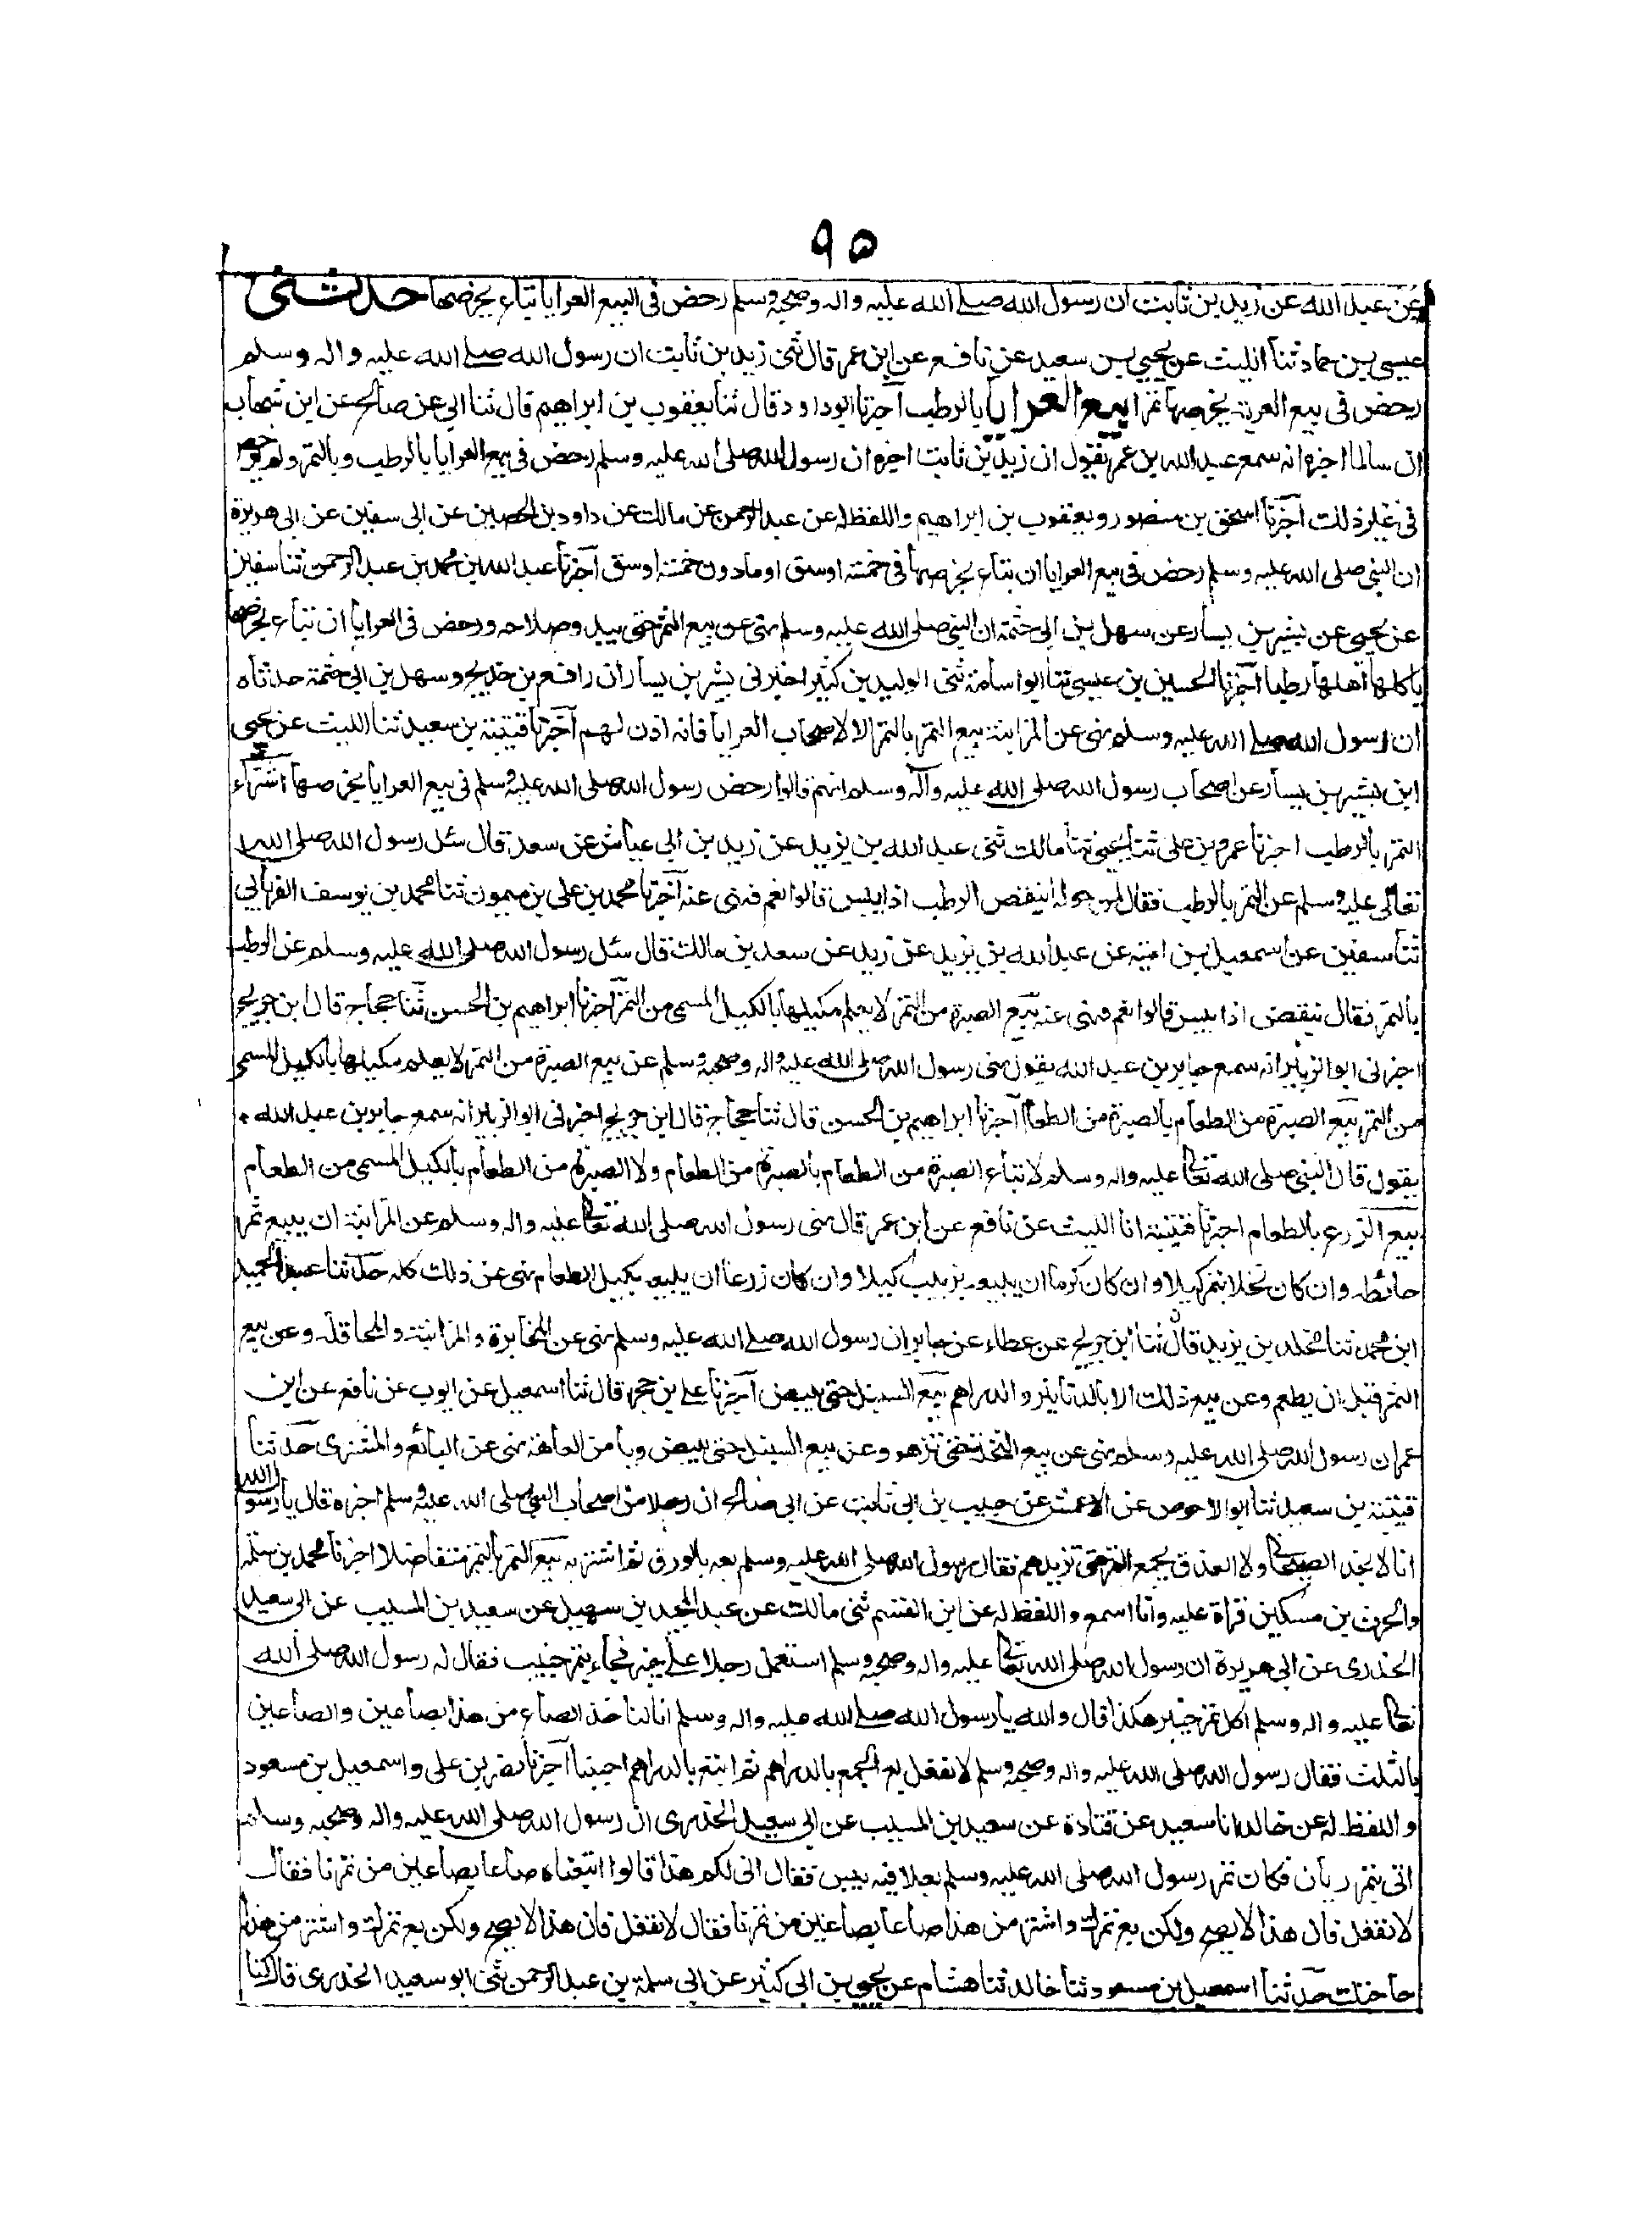 ٩٥
عن عبد الله عن زيد بن ثابت ان رسول الله صلى الله عليه واله وصحبه وسلم رخص فى البيع العرايا تباع بخرصها حدثنى
عيسى بن حماد ثنا الليث عن يحيى بن سعيد عن نافع عن ابن عمر قال ثنى زيد بن ثابت ان رسول الله صلى الله عليه واله وسلم
رخص فى بيع العرية بخرصها تمرا بيع العرايا بالرطب اخبرنا ابوداود قال ثنا يعقوب بن ابراهيم قال ثنا ابي عن صالح عن ابن شهاب
ان سالما اخبره انه سمع عبد الله بن عمر يقول ان زيد بن ثابت اخبره ان رسول الله صلى الله عليه وسلم رخص فى بيع العرايا بالرطب وبالتمر ولم يرخص
فى غير ذلك اخبرنا اسحق بن منصور ويعقوب بن ابراهيم واللفظ له عن عبد الرحمن عن مالك عن داود بن الحصين عن ابى سفين عن ابى هريرة
ان النبى صلى الله عليه وسلم رخص فى بيع العرايا ان تباع بخرصها فى خمسة اوسق او مادون خمسة اوسق اخبرنا عبد الله بن محمد بن عبد الرحمن ثنا سفين
عن يحيى عن بشير بن يسار عن سهل بن ابى حثمة ان النبى صلى الله عليه وسلم نهى عن بيع الثمر حتى يبدو صلاحه ورخص فى العرايا ان تباع بخرصها
ياكلها اهلها رطبا اخبرنا الحسين بن عيسى ثنا ابو اسامة ثنى الوليد بن كثير اخبرنى بشير بن يسار ان رافع بن خديج وسهل بن ابى حثمة حدثاه
ان رسول الله صلى الله عليه وسلم نهى عن المزابنة بيع الثمر بالتمر الا لاصحاب العرايا فانه اذن لهم اخبرنا قتيبة بن سعيد ثنا الليث عن يحيى
ابن بشير بن يسار عن اصحاب رسول الله صلى الله عليه وآله وسلم انهم قالوا رخص رسول الله صلى الله عليه وسلم فى بيع العرايا بخرصها اشتراء
التمر بالرطب اخبرنا عمرو بن على ثنا يحيى ثنا مالك ثنى عبد الله بن يزيد عن زيد بن ابى عياش عن سعد قال سئل رسول الله صلى الله
تعالى عليه وسلم عن التمر بالرطب فقال لمن حوله اينقص الرطب اذا يبس قالوا نعم فنهى عنه اخبرنا محمد بن على بن ميمون ثنا محمد بن يوسف الفريابي
ثنا سفين عن اسمعيل بن امية عن عبد الله بن يزيد عن زيد عن سعد بن مالك قال سئل رسول الله صلى الله عليه وسلم عن الرطب
بالتمر فقال ينقص اذا يبس قالوا نعم فنهى عنه بيع الصبرة من التمر لا يعلم مكيلها بالكيل المسمى من التمر اخبرنا ابراهيم بن الحسن ثنا حجاج قال ابن جريج
اخبرنى ابو الزبير انه سمع جابر بن عبد الله يقول نهى رسول الله صلى الله عليه واله وصحبه وسلم عن بيع الصبرة من التمر لا يعلم مكيلها بالكيل المسمى
من التمر بيع الصبرة من الطعام بالصبرة من الطعام اخبرنا ابراهيم بن الحسن قال ثنا حجاج قال ابن جريج اخبرنى ابو الزبير انه سمع جابر بن عبد الله
يقول قال النبى صلى الله تعالى عليه واله وسلم لا تباع الصبرة من الطعام بالصبرة من الطعام ولا الصبرة من الطعام بالكيل المسمى من الطعام
بيع الزرع بالطعام اخبرنا قتيبة انا الليث عن نافع عن ابن عمر قال نهى رسول الله صلى الله تعالى عليه واله وسلم عن المزابنة ان يبيع ثمر
حائطه وان كان نخلا بتمر كيلا وان كان كرما ان يبيعه بزبيب كيلا وان كان زرعا ان يبيعه بكيل الطعام نهى عن ذلك كله حدثنا عبد الحميد
ابن محمد ثنا مخلد بن يزيد قال ثنا ابن جريج عن عطاء عن جابر ان رسول الله صلى الله عليه وسلم نهى عن المخابرة والمزابنة والمحاقلة وعن بيع
الثمر قبل ان يطعم وعن بيع ذلك الا بالدنانير والدراهم بيع السنبل حتى يبيض اخبرنا على بن حجر قال ثنا اسمعيل عن ايوب عن نافع عن ابن
عمر ان رسول الله صلى الله عليه وسلم نهى عن بيع النخل حتى تزهو وعن بيع السنبل حتى يبيض ويامن العاهة نهى عن البائع والمشترى حدثنا
قتيبة بن سعيد ثنا ابو الاحوص عن الاعمش عن حبيب بن ابى ثابت عن ابى صالح ان رجلا من اصحاب النبى صلى الله عليه وسلم اخبره قال يا رسول الله
انا لا نجد الصيحانى ولا العذق بجمع التمر حتى نزيدهم فقال رسول الله صلى الله عليه وسلم بعه بالورق ثم اشتر به بيع التمر بالتمر متفاضلا اخبرنا محمد بن سلمة
والحرث بن مسكين قراة عليه وانا اسمع واللفظ له عن ابن القسم ثنى مالك عن عبد المجيد بن سهيل عن سعيد بن المسيب عن ابى سعيد
الخدرى عن ابى هريرة ان رسول الله صلى الله تعالى عليه واله وصحبه وسلم استعمل رجلا على خيبر فجاء بتمر جنيب فقال له رسول الله صلى الله
تعالى عليه واله وسلم اكل تمر خيبر هكذا قال والله يا رسول الله صلى الله عليه واله وسلم انا لنا خذ الصاع من هذا بصاعين والصاعين
بالثلث فقال رسول الله صلى الله عليه واله وصحبه وسلم لا تفعل بع الجمع بالدراهم ثم ابتع بالدراهم جنيبا اخبرنا نصر بن على واسمعيل بن مسعود
واللفظ له عن خالد انا سعيد عن قتادة عن سعيد بن المسيب عن ابى سعيد الخدرى ان رسول الله صلى الله عليه واله وصحبه وسلم
اتى بتمر ريان فكان تمر رسول الله صلى الله عليه وسلم بعلا فيه يبس فقال انى لكم هذا قالوا ابتعناه صاعا بصاعين من تمرنا فقال
لا تفعل قال هذا لا يصح ولكن بع تمرك واشتر من هذا صاعا بصاعين من تمرنا فقال لا تفعل فان هذا لا يصح ولكن بع تمرك واشتر من هذا
حاجتك حدثنا اسمعيل بن مسعود ثنا خالد ثنا هشام عن يحيى بن ابى كثير عن ابى سلمة بن عبد الرحمن ثنى ابو سعيد الخدرى قال كنا